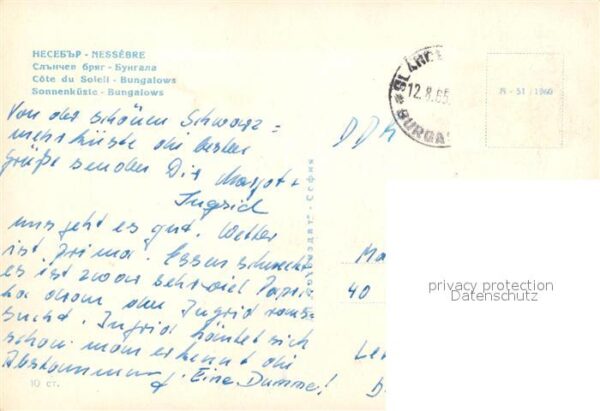 НЕСЕБЪР - NESSÈBRE
Слънчев бряг - Бунгала
Côte du Soleil - Bungalows
Sonnenküste - Bungalows
12.8.65.
BURGA
R - 51 / 1960
DDR
Von der schönen Schwarz=
meerküste die besten
Grüße senden Dir Margot +
Ingrid
uns geht es gut. Wetter
ist prima. Essen schmeckt
es ist zwar sehr viel Papri
ka dran den Ingrid raus-
sucht. Ingrid häutet sich
schon. man erkennt die
Abstammung. Eine Dumme!
София
Ma
40
Le
privacy protection
Datenschutz
10 ст.